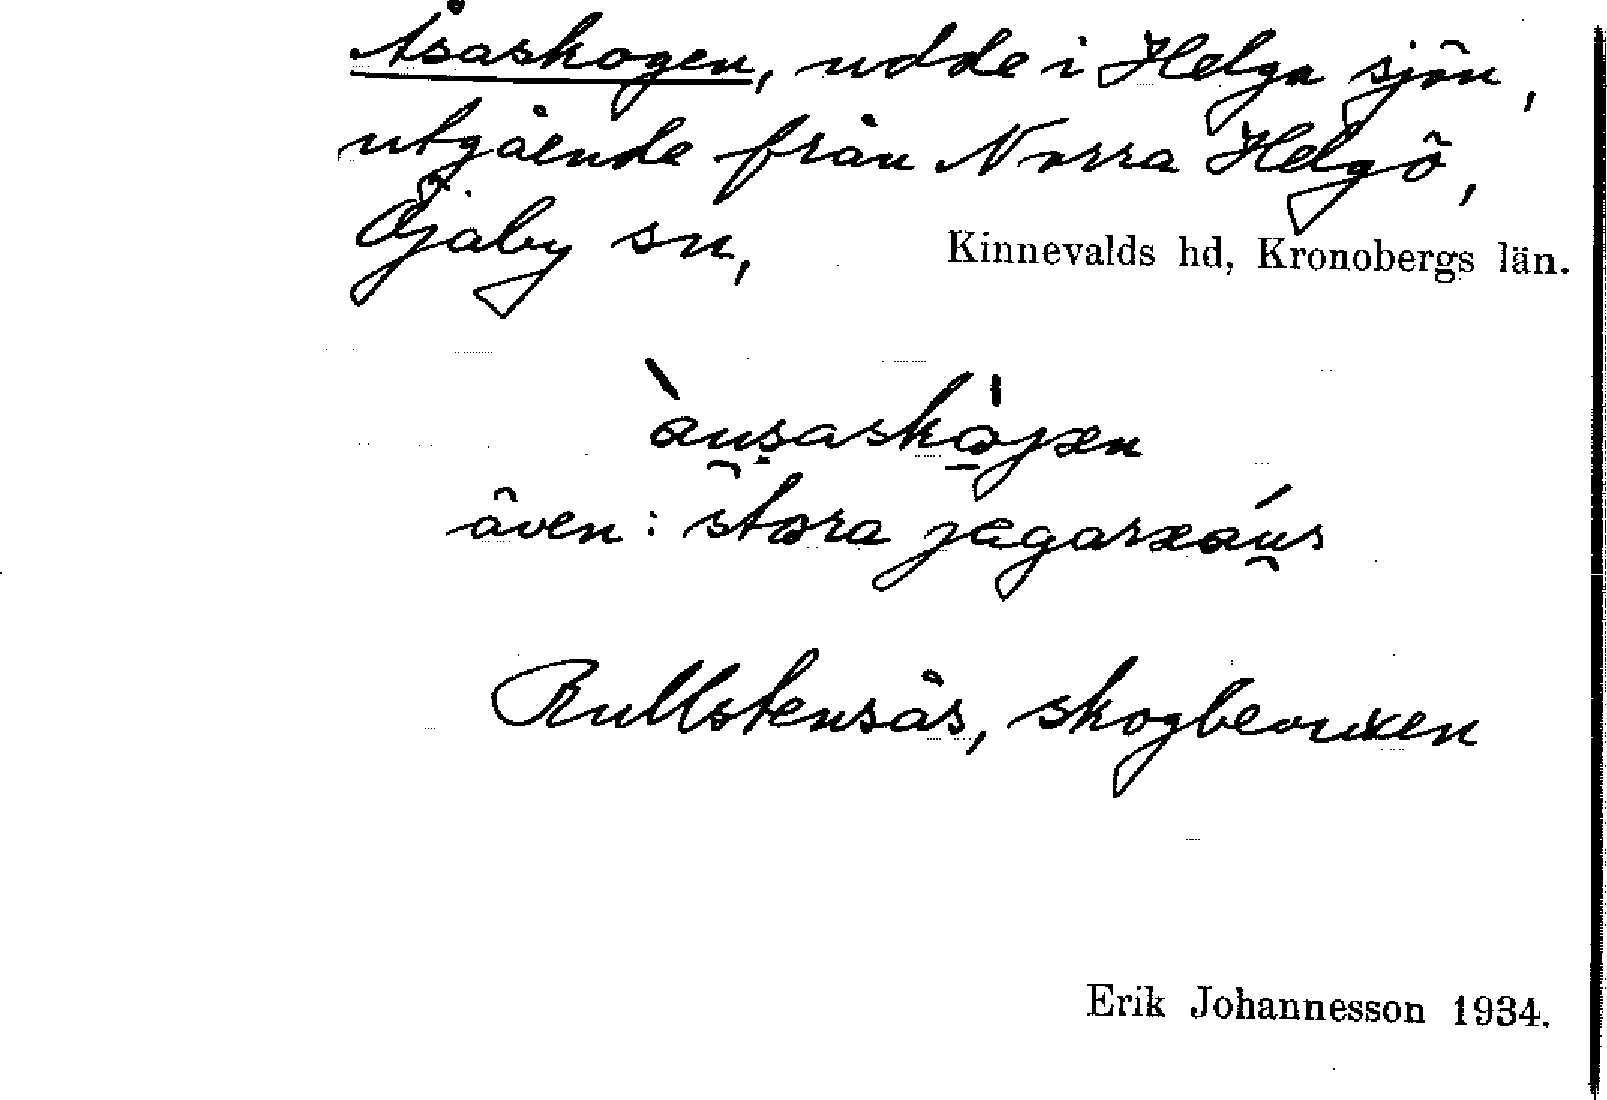 Åsaskogen, udde i Helga sjön,
utgående från Norra Helgö,
Öjaby sn, Kinnevalds hd, Kronobergs län.
även: stora
Rullstensås, skogbevuxen
Erik Johannesson 1934.